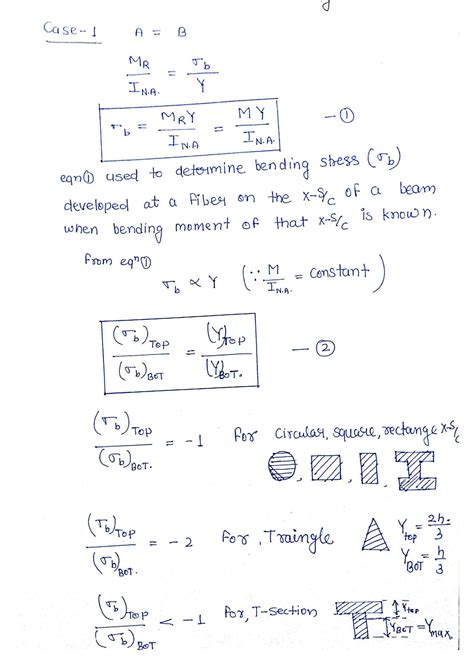 Case-1 A = B
M_R / I_N.A. = σ_b / Y
σ_b = M_R Y / I_N.A = M Y / I_N.A. — ①
eqn① used to determine bending stress (σ_b)
developed at a fiber on the x-s/c of a beam
when bending moment of that x-s/c is known.
from eqⁿ①
σ_b ∝ Y (∵ M / I_N.A. = constant)
(σ_b)_TOP / (σ_b)_BOT = (Y)_TOP / (Y)_BOT. — ②
(σ_b)_TOP / (σ_b)_BOT. = -1 for circular, square, rectange x-s/c
(σ_b)_TOP / (σ_b)_BOT. = -2 for, Traingle Y_top = 2h. / 3
Y_BOT = h / 3
(σ_b)_TOP / (σ_b)_BOT < -1 for, T-section Y_top
Y_BOT = Y_max